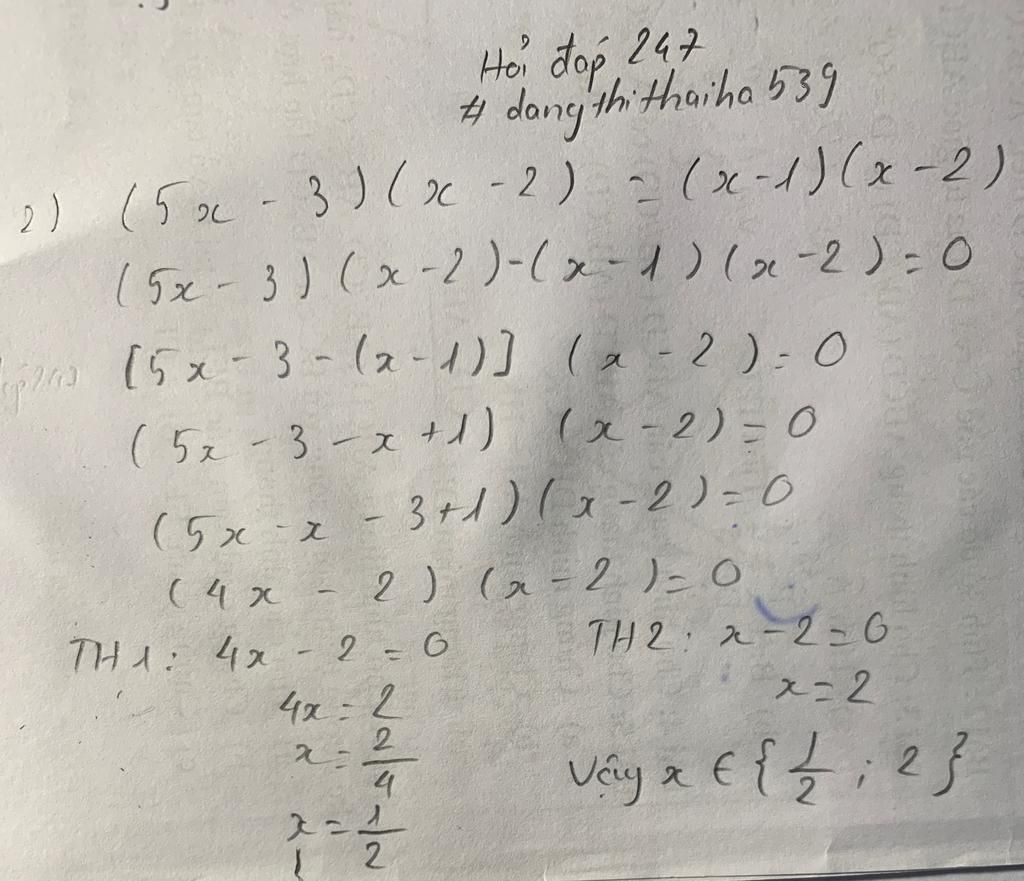 Hỏi đáp 247
# dangthithaiha539
2) (5x - 3)(x - 2) = (x-1)(x-2)
(5x - 3)(x-2)-(x-1)(x-2)=0
[5x-3-(x-1)] (x-2)=0
(5x-3-x+1) (x-2)=0
(5x-x-3+1)(x-2)=0
(4x - 2) (x-2)=0
TH1: 4x - 2 = 0
4x = 2
x = 2/4
x = 1/2
TH2: x-2=0
x=2
Vậy x ∈ {1/2 ; 2}